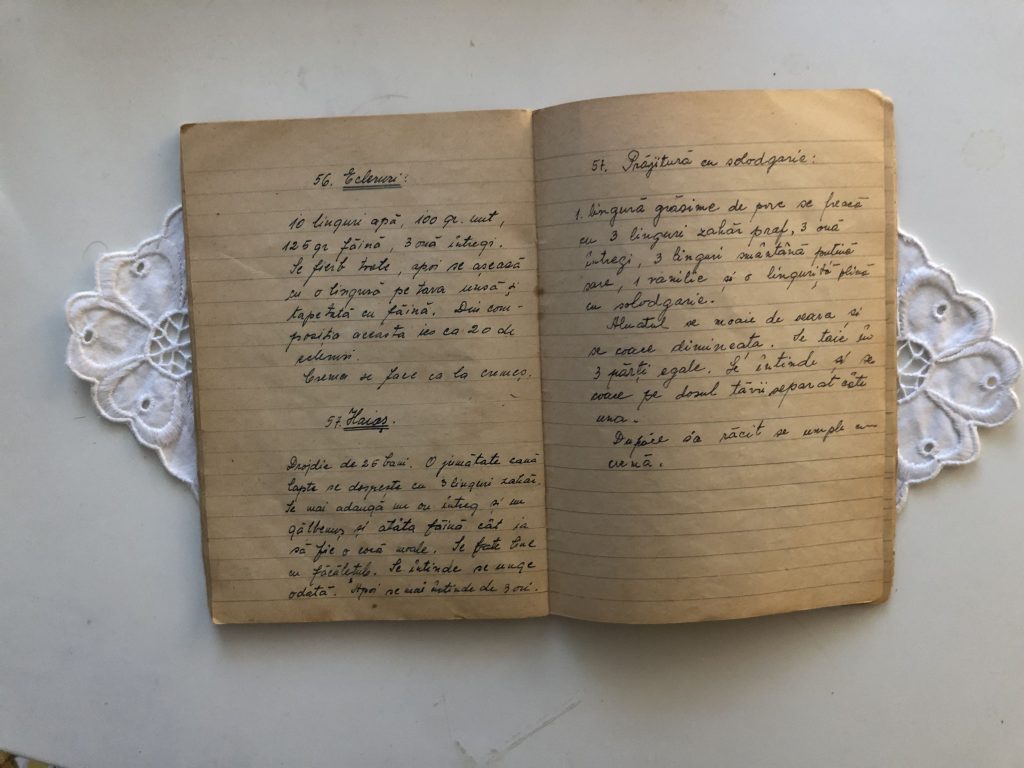 56. Ecleruri:
10 linguri apă, 100 gr. unt,
125 gr făină, 3 ouă întregi.
Se fierb toate, apoi se așează
cu o lingură pe tava unsă și
tapetată cu făină. Din com-
poziția aceasta ies ca 20 de
ecleruri.
Crema se face ca la cremeș.
57. Haioș.
Drojdie de 25 bani. O jumătate cană
lapte se dospește cu 3 linguri zahăr.
Se mai adaugă un ou întreg și un
gălbenuș și atâta făină cât ia
să fie o cocă moale. Se bate bine
cu făcălețul. Se întinde se unge
odată. Apoi se mai întinde de 3 ori.
57. Prăjitură cu solodgarie:
1. lingură grăsime de porc se freacă
cu 3 linguri zahăr praf, 3 ouă
întregi, 3 linguri smântână puțină
sare, 1 vanilie și o linguriță plină
cu solodgarie.
Aluatul se moaie de seara și
se coace dimineata. Se taie în
3 părți egale. Se întinde și se
coace pe dosul tăvii separat câte
una.
Dupăce s'a răcit se umple cu
cremă.